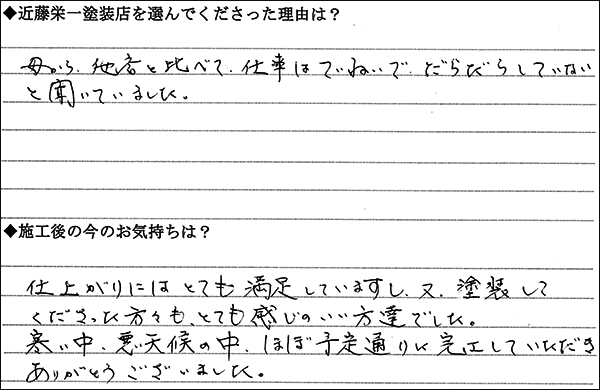 ◆近藤栄一塗装店を選んでくださった理由は？
母から、他店と比べて、仕事はていねいで、だらだらしていない
と聞いていました。
◆施工後の今のお気持ちは？
仕上がりにはとても満足していますし、又、塗装して
くださった方々も、とても感じのいい方達でした。
寒い中、悪天候の中、ほぼ予定通りに完工していただき
ありがとうございました。